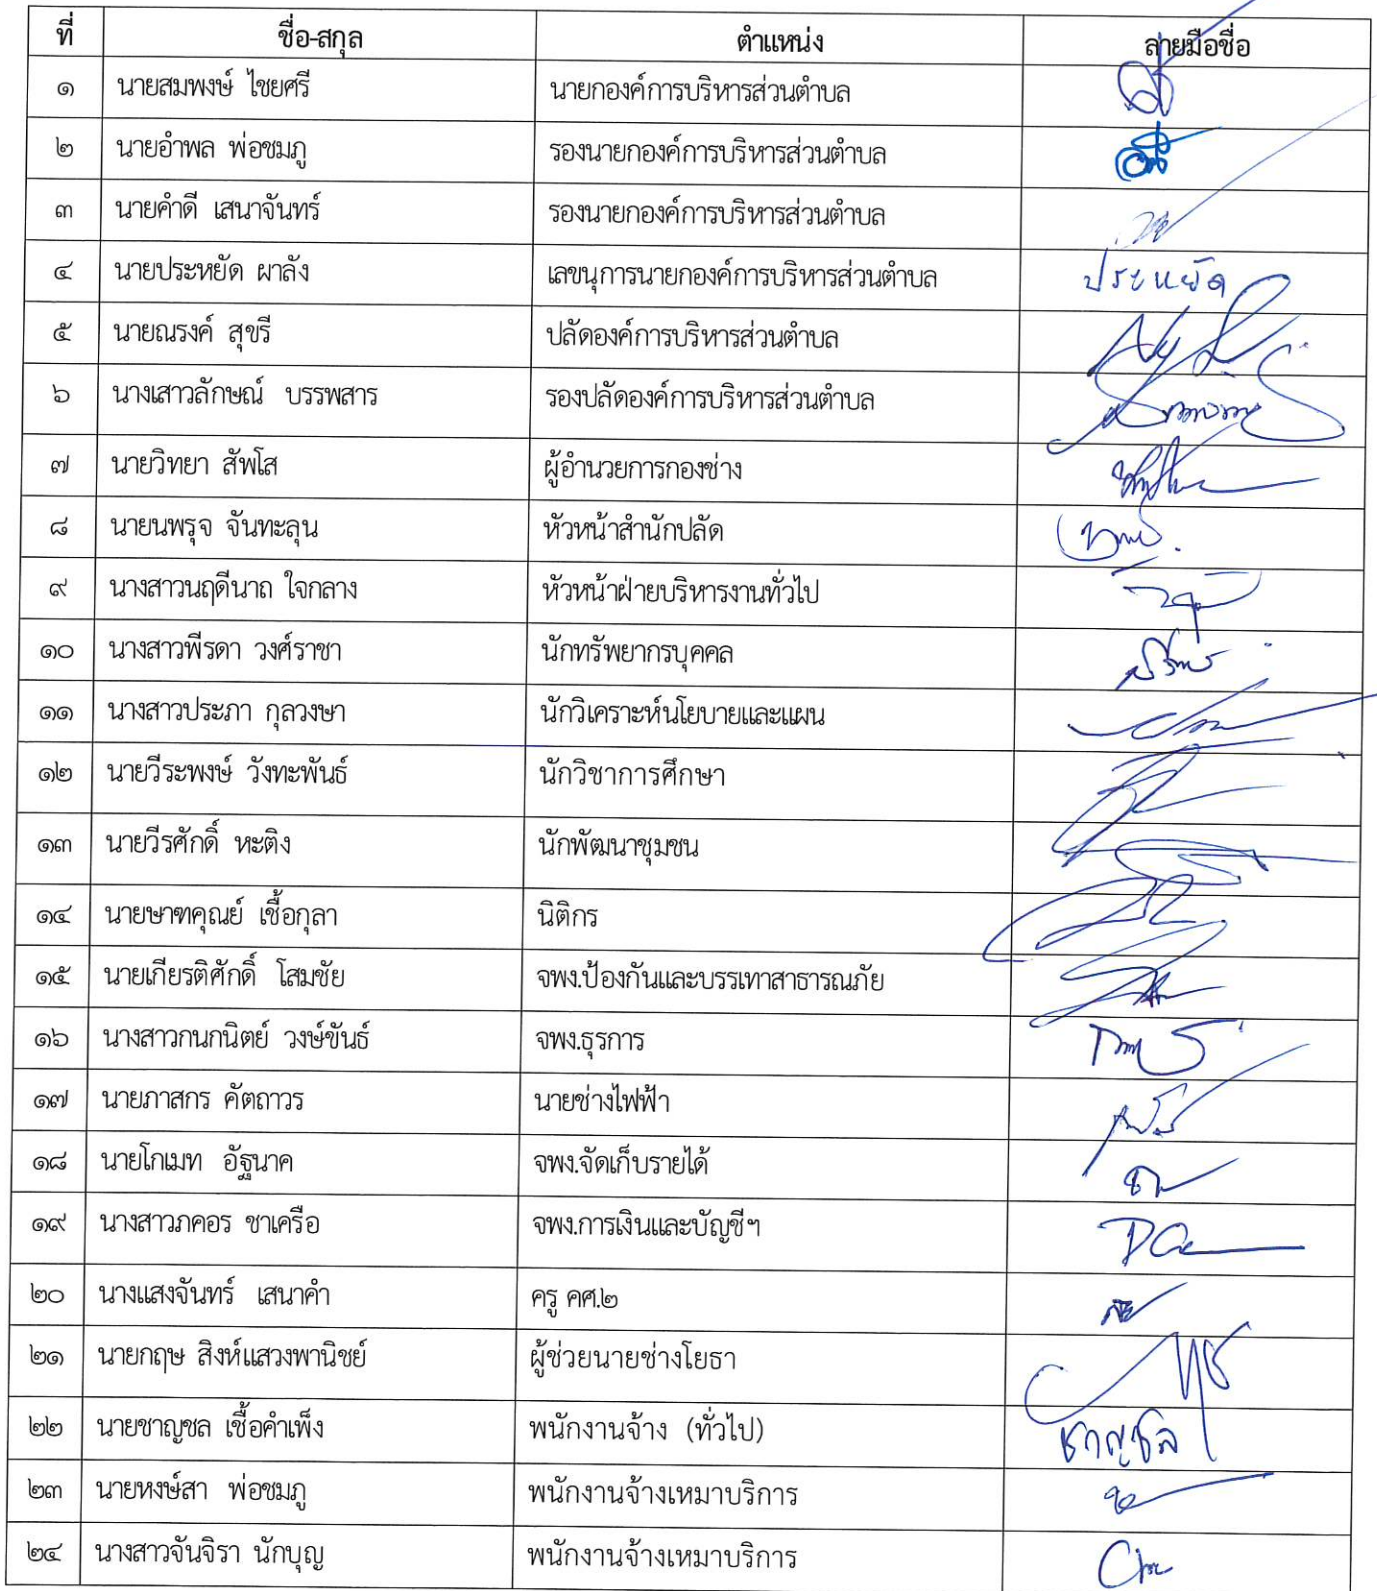 ที่ ชื่อ-สกุล ตำแหน่ง ลายมือชื่อ
๑ นายสมพงษ์ ไชยศรี นายกองค์การบริหารส่วนตำบล
๒ นายอำพล พ่อชมภู รองนายกองค์การบริหารส่วนตำบล
๓ นายคำดี เสนาจันทร์ รองนายกองค์การบริหารส่วนตำบล
๔ นายประหยัด ผาลัง เลขนุการนายกองค์การบริหารส่วนตำบล ประหยัด
๕ นายณรงค์ สุขรี ปลัดองค์การบริหารส่วนตำบล
๖ นางเสาวลักษณ์ บรรพสาร รองปลัดองค์การบริหารส่วนตำบล
๗ นายวิทยา สัพโส ผู้อำนวยการกองช่าง
๘ นายนพรุจ จันทะลุน หัวหน้าสำนักปลัด
๙ นางสาวนฤดีนาถ ใจกลาง หัวหน้าฝ่ายบริหารงานทั่วไป
๑๐ นางสาวพีรดา วงศ์ราชา นักทรัพยากรบุคคล
๑๑ นางสาวประภา กุลวงษา นักวิเคราะห์นโยบายและแผน
๑๒ นายวีระพงษ์ วังทะพันธ์ นักวิชาการศึกษา
๑๓ นายวีรศักดิ์ หะติง นักพัฒนาชุมชน
๑๔ นายษาฑคุณย์ เชื้อกุลา นิติกร
๑๕ นายเกียรติศักดิ์ โสมชัย จพง.ป้องกันและบรรเทาสาธารณภัย
๑๖ นางสาวกนกนิตย์ วงษ์ขันธ์ จพง.ธุรการ
๑๗ นายภาสกร คัตถาวร นายช่างไฟฟ้า
๑๘ นายโกเมท อัฐนาค จพง.จัดเก็บรายได้
๑๙ นางสาวภคอร ชาเครือ จพง.การเงินและบัญชีฯ
๒๐ นางแสงจันทร์ เสนาคำ ครู คศ.๒
๒๑ นายกฤษ สิงห์แสวงพานิชย์ ผู้ช่วยนายช่างโยธา
๒๒ นายชาญชล เชื้อคำเพ็ง พนักงานจ้าง (ทั่วไป) ชาญชล
๒๓ นายหงษ์สา พ่อชมภู พนักงานจ้างเหมาบริการ
๒๔ นางสาวจันจิรา นักบุญ พนักงานจ้างเหมาบริการ